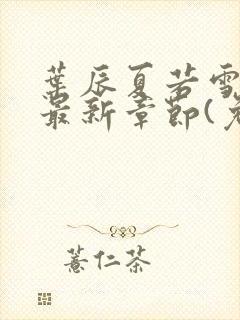 葉辰夏若雪
最新章節(免
薏仁茶